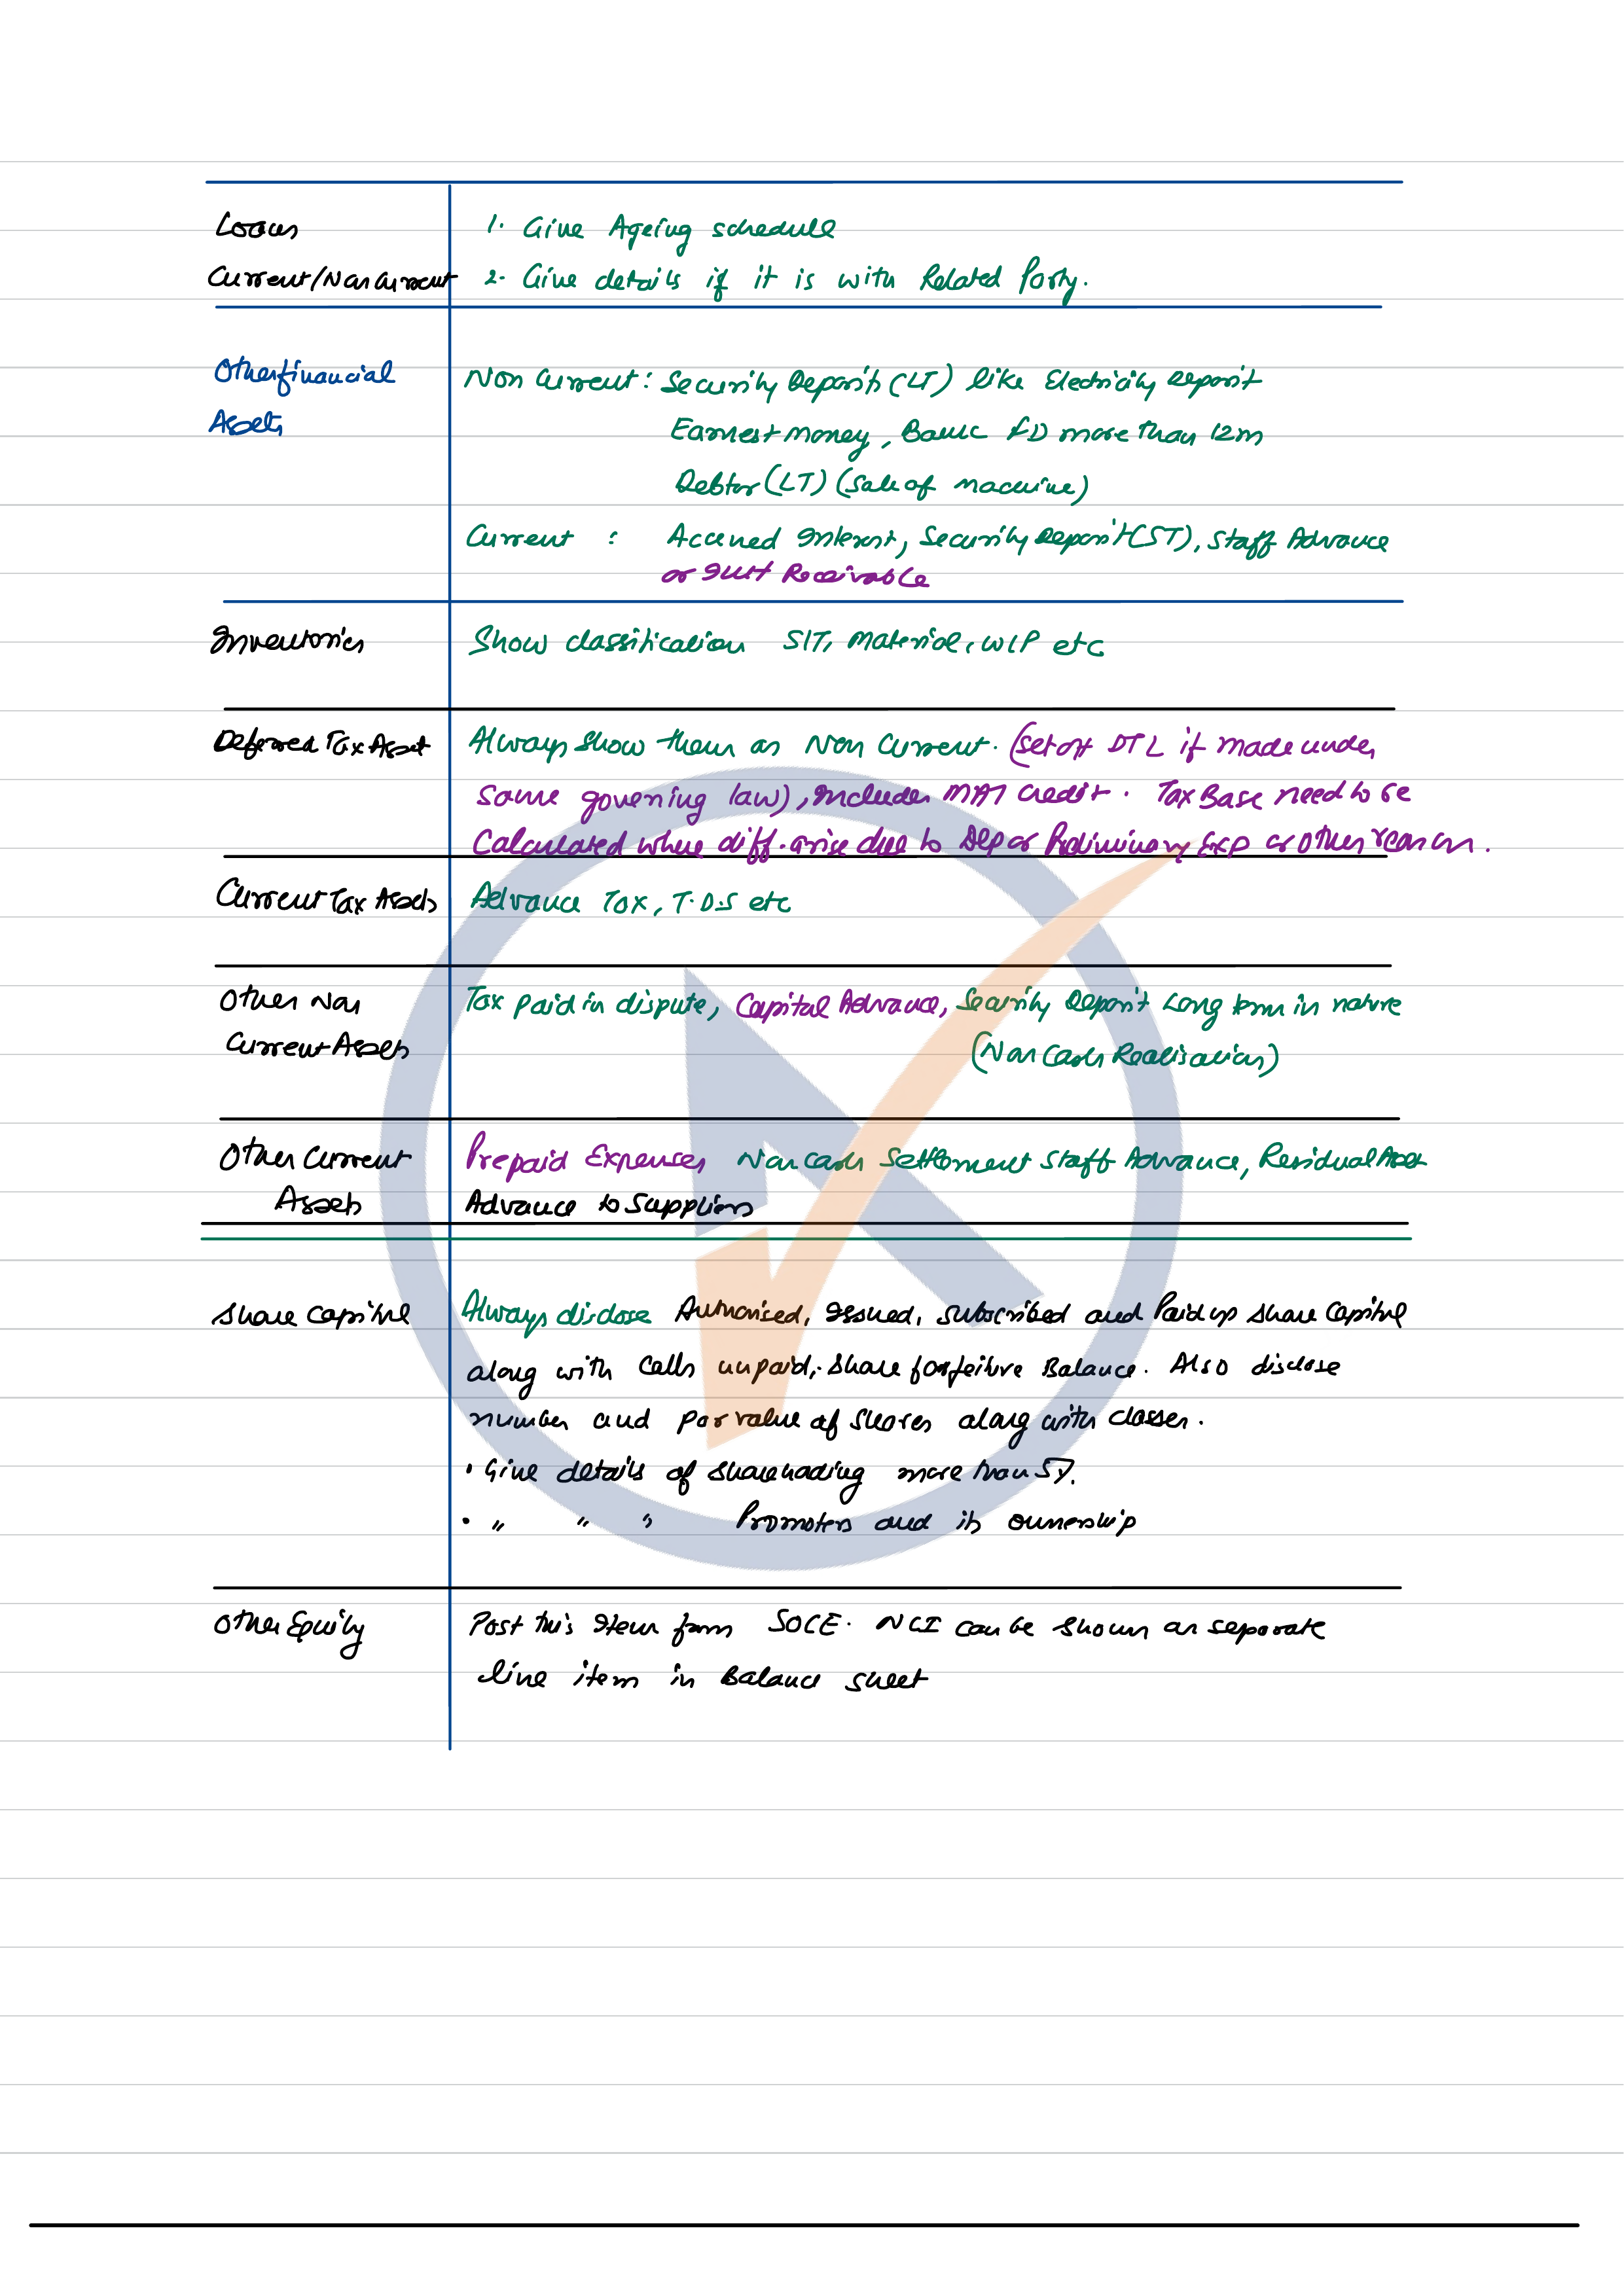 Loans
1. Give Ageing schedule
Current/Non Current
2. Give details if it is with Related Party.
Other financial
Assets
Non Current : Security Deposit (LT) like Electricity Deposit
Earnest money, Bank FD more than 12m
Debtor (LT) (Sale of machine)
Current : Accrued Interest, Security Deposit (ST), Staff Advance
or Receivable
Inventories
Show classification SIT, Material, WIP etc
Deferred Tax Asset
Always show them as Non Current. (set off DTL if made under
same governing law), Includes MAT credit. Tax Base need to be
Calculated where diff. arise due to Dep or Preliminary Exp or other reason.
Current Tax Assets
Advance Tax, T.D.S etc
Other Non
Current Assets
Tax paid in dispute, Capital Advance, Security Deposit Long term in nature
(Non Cash Realisation)
Other Current
Assets
Prepaid Expenses Non cash Settlement Staff Advance, Residual Asset
Advance to Suppliers
Share Capital
Always disclose Authorised, Issued, subscribed and Paid up share capital
along with calls unpaid, share forfeiture Balance. Also disclose
number and par value of shares along with classes.
• Give details of shareholding more than 5%.
• " " " Promoters and its ownership
Other Equity
Post this item from SOCE. NCI can be shown as separate
line item in Balance sheet